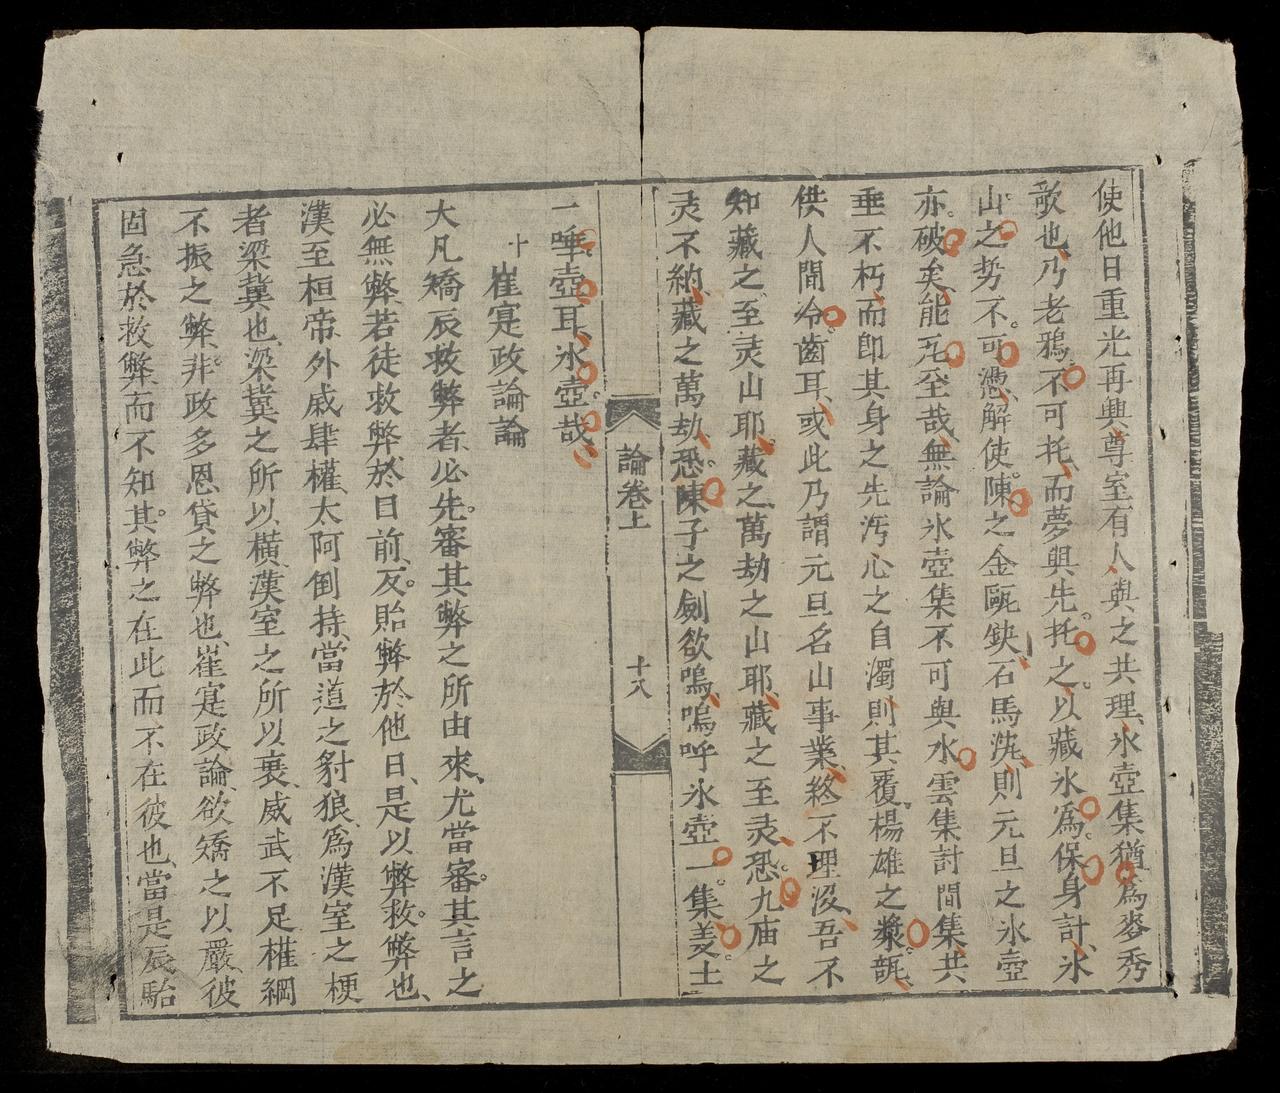 使他日重光再興尊室有人與之共理氷壺集猶爲麥秀
歌也乃老鴉不可托而夢與先托之以藏氷爲保身計氷
山之势不可憑解使陳之金甌鈌石馬洗則元旦之氷壺
亦破矣能旡坙哉無論氷壺集不可與水雲集計間集共
垂不朽而卽其身之先汚心之自濁則其覆楊雄之漿瓿
供人間冷齒耳或此乃謂元旦名山事業終不理沒吾不
知藏之至灵山耶藏之萬劫之山耶藏之至灵恐九庙之
灵不納藏之萬劫恐陳子之劍欲鳴嗚呼氷壺一集㕓土
一唾壺耳氷壺哉
論卷上
十八
十 崔寔政論論
大凡矯辰救弊者必先審其弊之所由來尤當審其言之
必無弊若徒救弊於目前反貽弊於他日是以弊救弊也
漢至桓帝外戚肆權太阿倒持當道之豺狼爲漢室之梗
者梁冀也梁冀之所以橫漢室之所以衰威武不足權綱
不振之弊非政多恩貸之弊也崔寔政論欲矯之以嚴彼
固急於救弊而不知其弊之在此而不在彼也當是辰駘